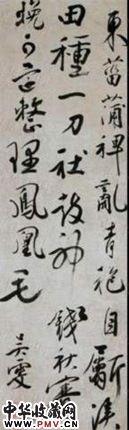 東菑蒲稗亂青袍自斸
田種一刀社設神錢秋
晚可容整理鳳凰毛
吳雯
中华收藏网
WWW.PMV.CN